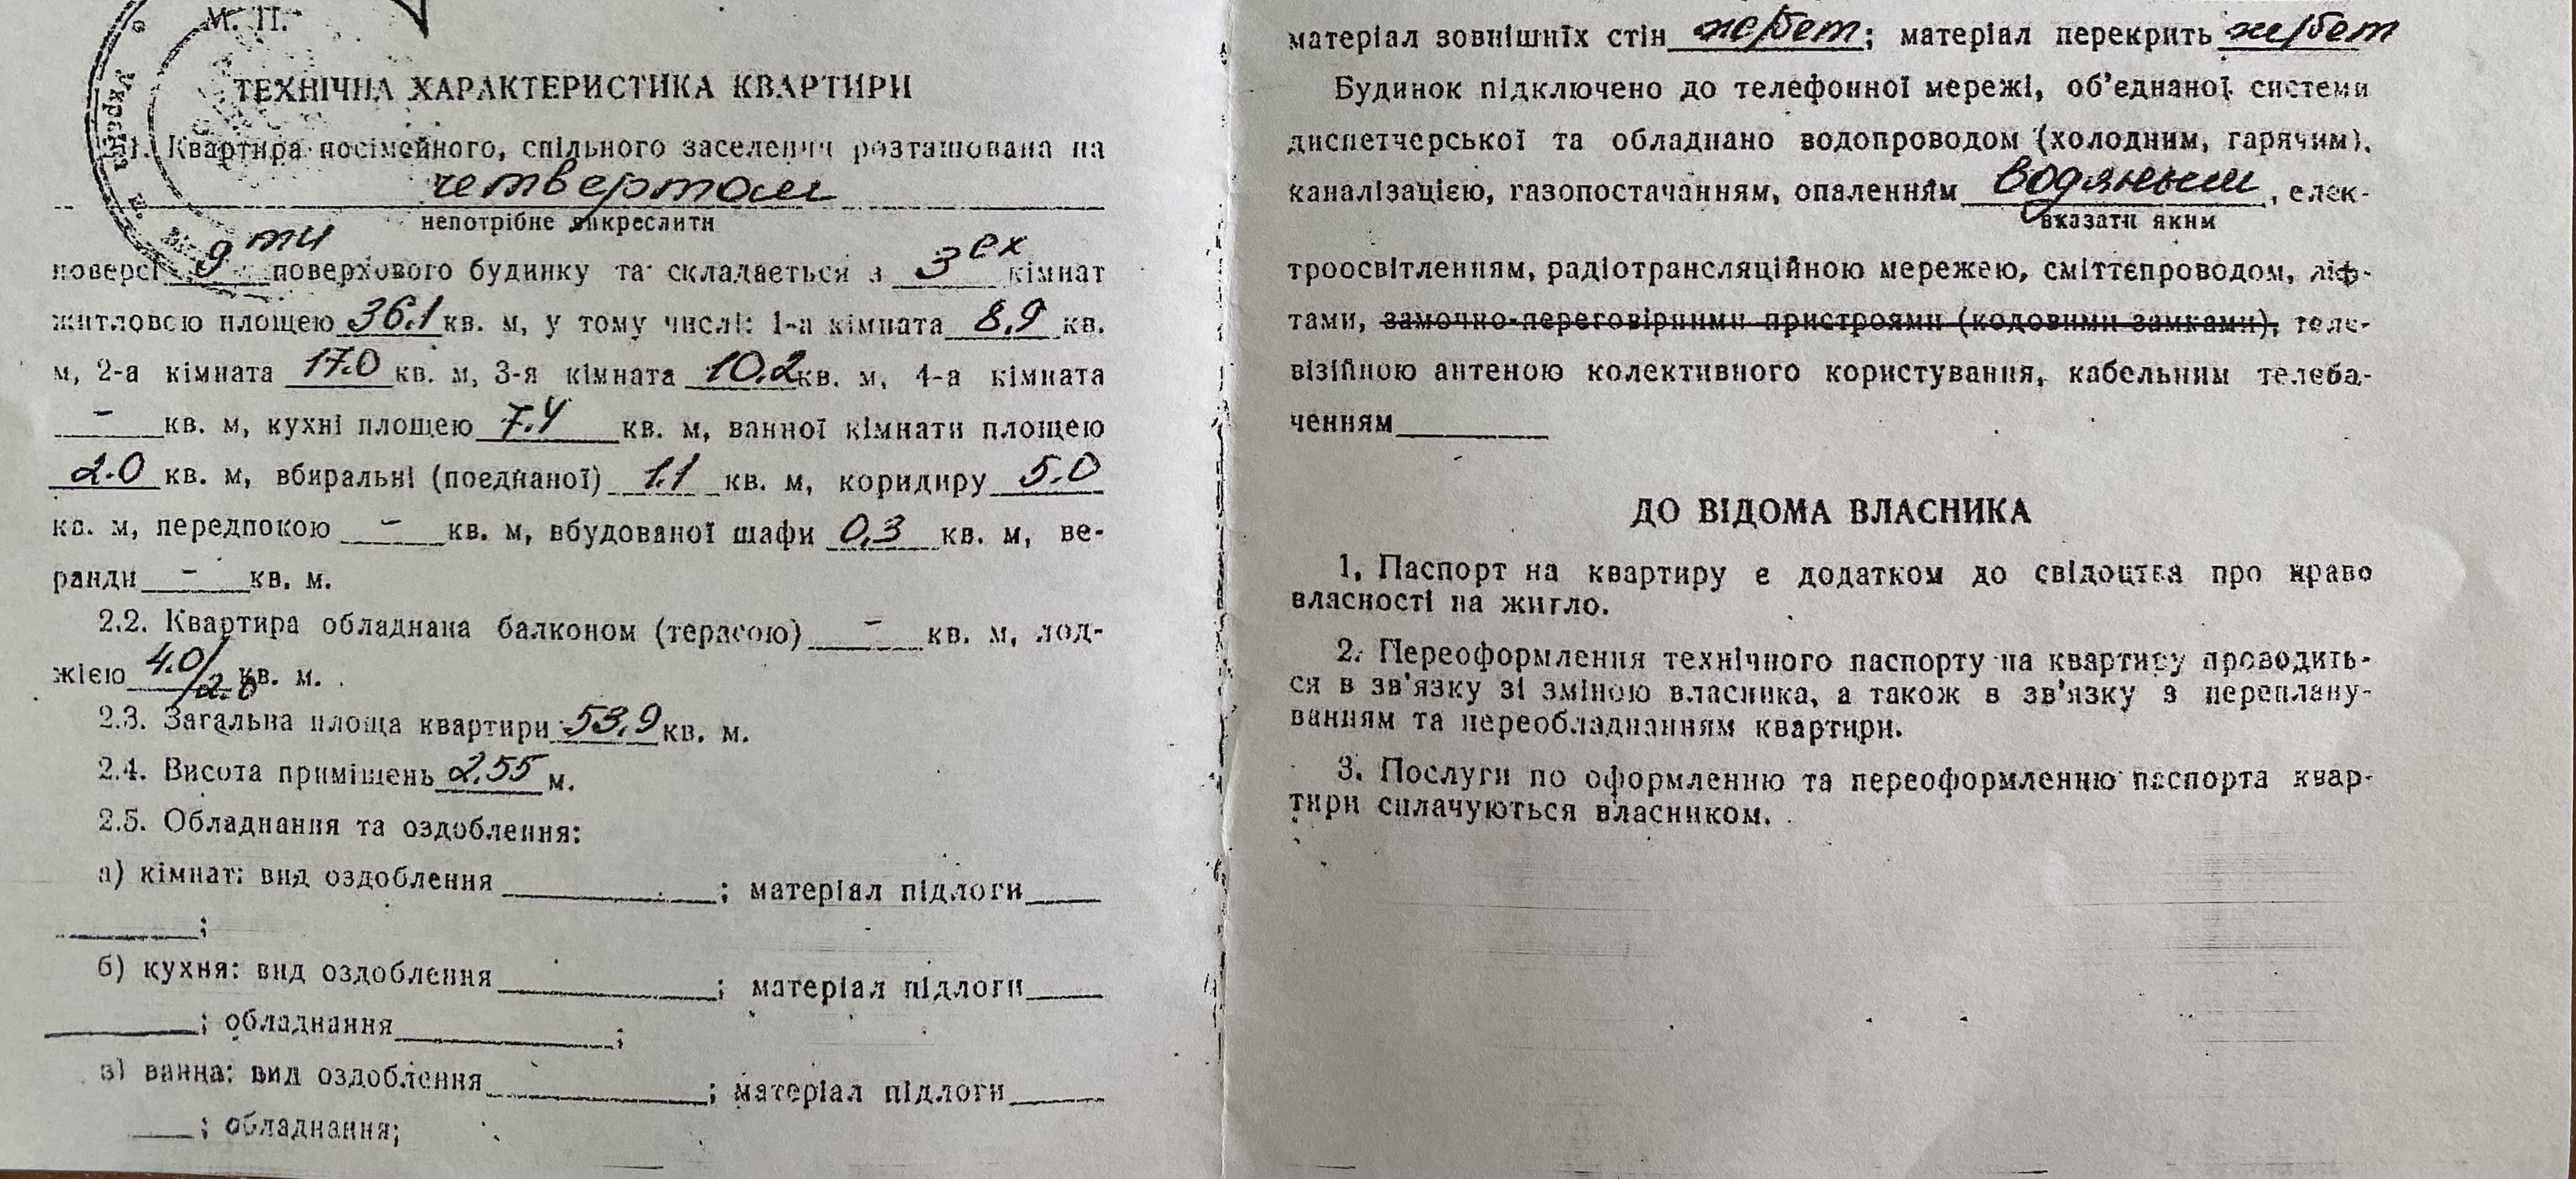 М. П.
ТЕХНІЧНА ХАРАКТЕРИСТИКА КВАРТИРИ
1. Квартира посімейного, спільного заселення розташована на
четвертом
непотрібне викреслити
поверсі 9ти поверхового будинку та складається з 3ех кімнат
житловою площею 36.1 кв. м, у тому числі: 1-а кімната 8,9 кв.
м, 2-а кімната 17.0 кв. м, 3-я кімната 10.2 кв. м, 4-а кімната
- кв. м, кухні площею 7.4 кв. м, ванної кімнати площею
2.0 кв. м, вбиральні (поєднаної) 1.1 кв. м, коридиру 5.0
кв. м, передпокою - кв. м, вбудованої шафи 0,3 кв. м, ве-
ранди - кв. м.
2.2. Квартира обладнана балконом (терасою) - кв. м, лод-
жією 4.0/2.0 кв. м.
2.3. Загальна площа квартири 53,9 кв. м.
2.4. Висота приміщень 2.55 м.
2.5. Обладнання та оздоблення:
а) кімнат: вид оздоблення ; матеріал підлоги
;
б) кухня: вид оздоблення ; матеріал підлоги
; обладнання ;
в) ванна: вид оздоблення ; матеріал підлоги
; обладнання;
матеріал зовнішніх стін ж/бет; матеріал перекрить ж/бет
Будинок підключено до телефонної мережі, об'єднаної системи
диспетчерської та обладнано водопроводом (холодним, гарячим),
каналізацією, газопостачанням, опаленням водяным, елек-
вказати яким
троосвітленням, радіотрансляційною мережею, сміттєпроводом, ліф-
тами, замочно-переговірними пристроями (кодовими замками), теле-
візійною антеною колективного користування, кабельним телеба-
ченням
ДО ВІДОМА ВЛАСНИКА
1. Паспорт на квартиру є додатком до свідоцтва про право
власності на житло.
2. Переоформлення технічного паспорту на квартиру проводить-
ся в зв'язку зі зміною власника, а також в зв'язку з переплану-
ванням та переобладнанням квартири.
3. Послуги по оформленню та переоформленню паспорта квар-
тири сплачуються власником.